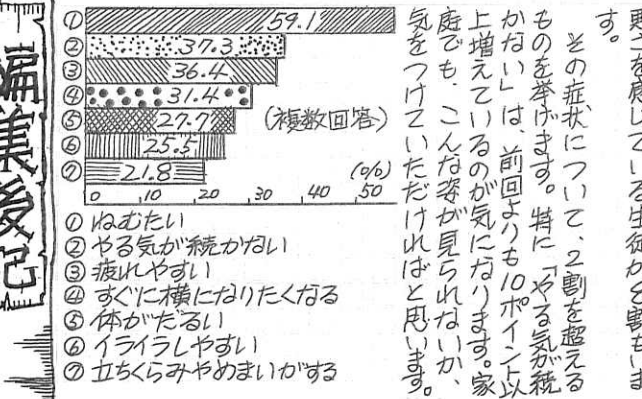 す。
その症状について、2割を超える
ものを挙げます。特に「やる気が続
かない」は、前回よりも10ポイント以
上増えているのが気になります。家
庭でも、こんな姿が見られないか、
気をつけていただければと思います。
① 59.1
② 37.3
③ 36.4
④ 31.4
⑤ 27.7
⑥ 25.5
⑦ 21.8
(複数回答)
(%)
0 10 20 30 40 50
① ねむたい
② やる気が続かない
③ 疲れやすい
④ すぐに横になりたくなる
⑤ 体がだるい
⑥ イライラしやすい
⑦ 立ちくらみやめまいがする
編集後記